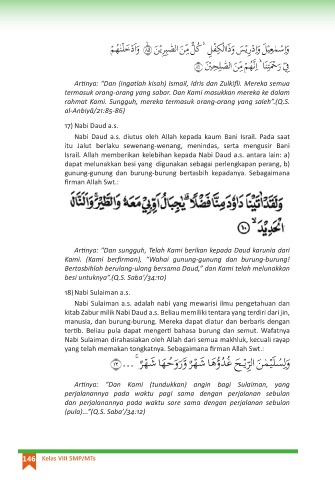 وَاِسْمٰعِيْلَ وَاِدْرِيْسَ وَذَا الْكِفْلِۗ كُلٌّ مِّنَ الصّٰبِرِيْنَ ۙ ٨٥ وَاَدْخَلْنٰهُمْ
فِيْ رَحْمَتِنَاۗ اِنَّهُمْ مِّنَ الصّٰلِحِيْنَ ٨٦
Artinya: “Dan (ingatlah kisah) Ismail, Idris dan Zulkifli. Mereka semua
termasuk orang-orang yang sabar. Dan Kami masukkan mereka ke dalam
rahmat Kami. Sungguh, mereka termasuk orang-orang yang saleh”.(Q.S.
al-Anbiyā/21:85-86)
17) Nabi Daud a.s.
Nabi Daud a.s. diutus oleh Allah kepada kaum Bani Israil. Pada saat
itu Jalut berlaku sewenang-wenang, menindas, serta mengusir Bani
Israil. Allah memberikan kelebihan kepada Nabi Daud a.s. antara lain: a)
dapat melunakkan besi yang digunakan sebagai perlengkapan perang, b)
gunung-gunung dan burung-burung bertasbih kepadanya. Sebagaimana
firman Allah Swt.:
وَلَقَدْ اٰتَيْنَا دَاوٗدَ مِنَّا فَضْلًاۗ يٰجِبَالُ اَوِّبِيْ مَعَهٗ وَالطَّيْرَ ۚوَاَلَنَّا لَهُ
الْحَدِيْدَۙ ١٠
Artinya: “Dan sungguh, Telah Kami berikan kepada Daud karunia dari
Kami. (Kami berfirman), “Wahai gunung-gunung dan burung-burung!
Bertasbihlah berulang-ulang bersama Daud,” dan Kami telah melunakkan
besi untuknya”.(Q.S. Saba’/34:10)
18) Nabi Sulaiman a.s.
Nabi Sulaiman a.s. adalah nabi yang mewarisi ilmu pengetahuan dan
kitab Zabur milik Nabi Daud a.s. Beliau memiliki tentara yang terdiri dari jin,
manusia, dan burung-burung. Mereka dapat diatur dan berbaris dengan
tertib. Beliau pula dapat mengerti bahasa burung dan semut. Wafatnya
Nabi Sulaiman dirahasiakan oleh Allah dari semua makhluk, kecuali rayap
yang telah memakan tongkatnya. Sebagaimana firman Allah Swt.:
وَلِسُلَيْمٰنَ الرِّيْحَ غُدُوُّهَا شَهْرٌ وَّرَوَاحُهَا شَهْرٌۚ ... ١٢
Artinya: “Dan Kami (tundukkan) angin bagi Sulaiman, yang
perjalanannya pada waktu pagi sama dengan perjalanan sebulan
dan perjalanannya pada waktu sore sama dengan perjalanan sebulan
(pula)...”(Q.S. Saba’/34:12)
146 Kelas VIII SMP/MTs